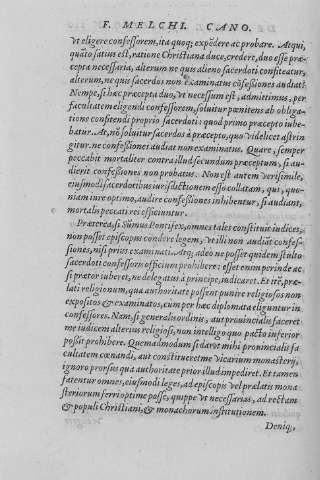 F. MELCHI. CANO.
vt eligere confessorem, ita quoq; expēdere ac probare. Atqui,
quāto satius est, ratione Christiana duce, credere, duo esse præ-
cepta necessaria, alterum ne quis alieno sacerdoti confiteatur,
alterum, ne quis sacerdos non examinatus cōfessiones audiat?
Nempe, si hæc præcepta duo, vt necessum est, admittimus, per
facultatem eligendi confessorem, soluitur pænitens ab obliga-
tione confitendi proprio sacerdoti: quod primo præcepto iube-
batur. At, nō soluitur sacerdos à præcepto, quo videlicet astrin
gitur. ne confessiones audiat non examinatus. Quare, semper
peccabit mortaliter contra illud secundum præceptum, si au-
dierit confessiones non probatus. Non est autem verisimile,
eiusmodi sacerdotibus iurisdictionem esse collatam, qui, quo-
niam iure optimo, audire confessiones inhibentur, si audiant,
mortalis peccati rei efficiuntur.
Præterea, si Sūmus Pontifex, omnes tales constituit iudices,
non posset episcopus condere legem, vt illi non audiāt confes-
siones, nisi prius examinati. Atq; adeo ne posset quidem stulto
sacerdoti confessoris officium prohibere: esset enim perinde ac
si prætor iuberet, ne delegatus à principe, iudicaret. Et itē, præ-
lati religionum, qua authoritate possent punire religiosos non
expositos & examinatos, cum per hæc diplomata eliguntur in
confessores. Nam, si generalis ordinis, aut prouincialis faceret
me iudicem alterius religiosi, non intelligo quo pacto inferior
possit prohibere. Quemadmodum si daret mihi prouincialis fa
cultatem cœnandi, aut constitueret me vicarium monasterij,
ignoro prorsus qua authoritate prior illud impediret. Et tamen
fatentur omnes, eiusmodi leges, ad episcopis vel prælatis mona
steriorum ferri optime posse, quippe vt necessarias, ad rectam
& populi Christiani, & monachorum institutionem.
Deniq;,